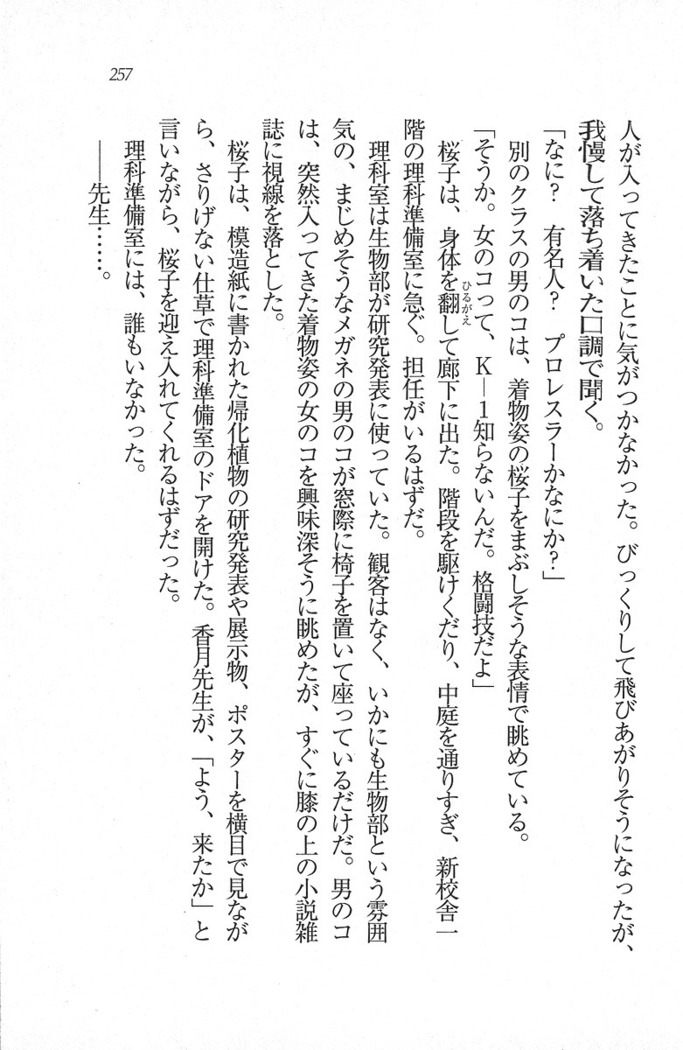 257
人が入ってきたことに気がつかなかった。びっくりして飛びあがりそうになったが、
我慢して落ち着いた口調で聞く。
「なに？　有名人？　プロレスラーかなにか？」
別のクラスの男のコは、着物姿の桜子をまぶしそうな表情で眺めている。
「そうか。女のコって、K―1知らないんだ。格闘技だよ」
桜子は、身体を翻して廊下に出た。階段を駆けくだり、中庭を通りすぎ、新校舎一
ひるがえ
階の理科準備室に急ぐ。担任がいるはずだ。
理科室は生物部が研究発表に使っていた。観客はなく、いかにも生物部という雰囲
気の、まじめそうなメガネの男のコが窓際に椅子を置いて座っているだけだ。男のコ
は、突然入ってきた着物姿の女のコを興味深そうに眺めたが、すぐに膝の上の小説雑
誌に視線を落とした。
桜子は、模造紙に書かれた帰化植物の研究発表や展示物、ポスターを横目で見なが
ら、さりげない仕草で理科準備室のドアを開けた。香月先生が、「よう、来たか」と
言いながら、桜子を迎え入れてくれるはずだった。
理科準備室には、誰もいなかった。
――先生……。